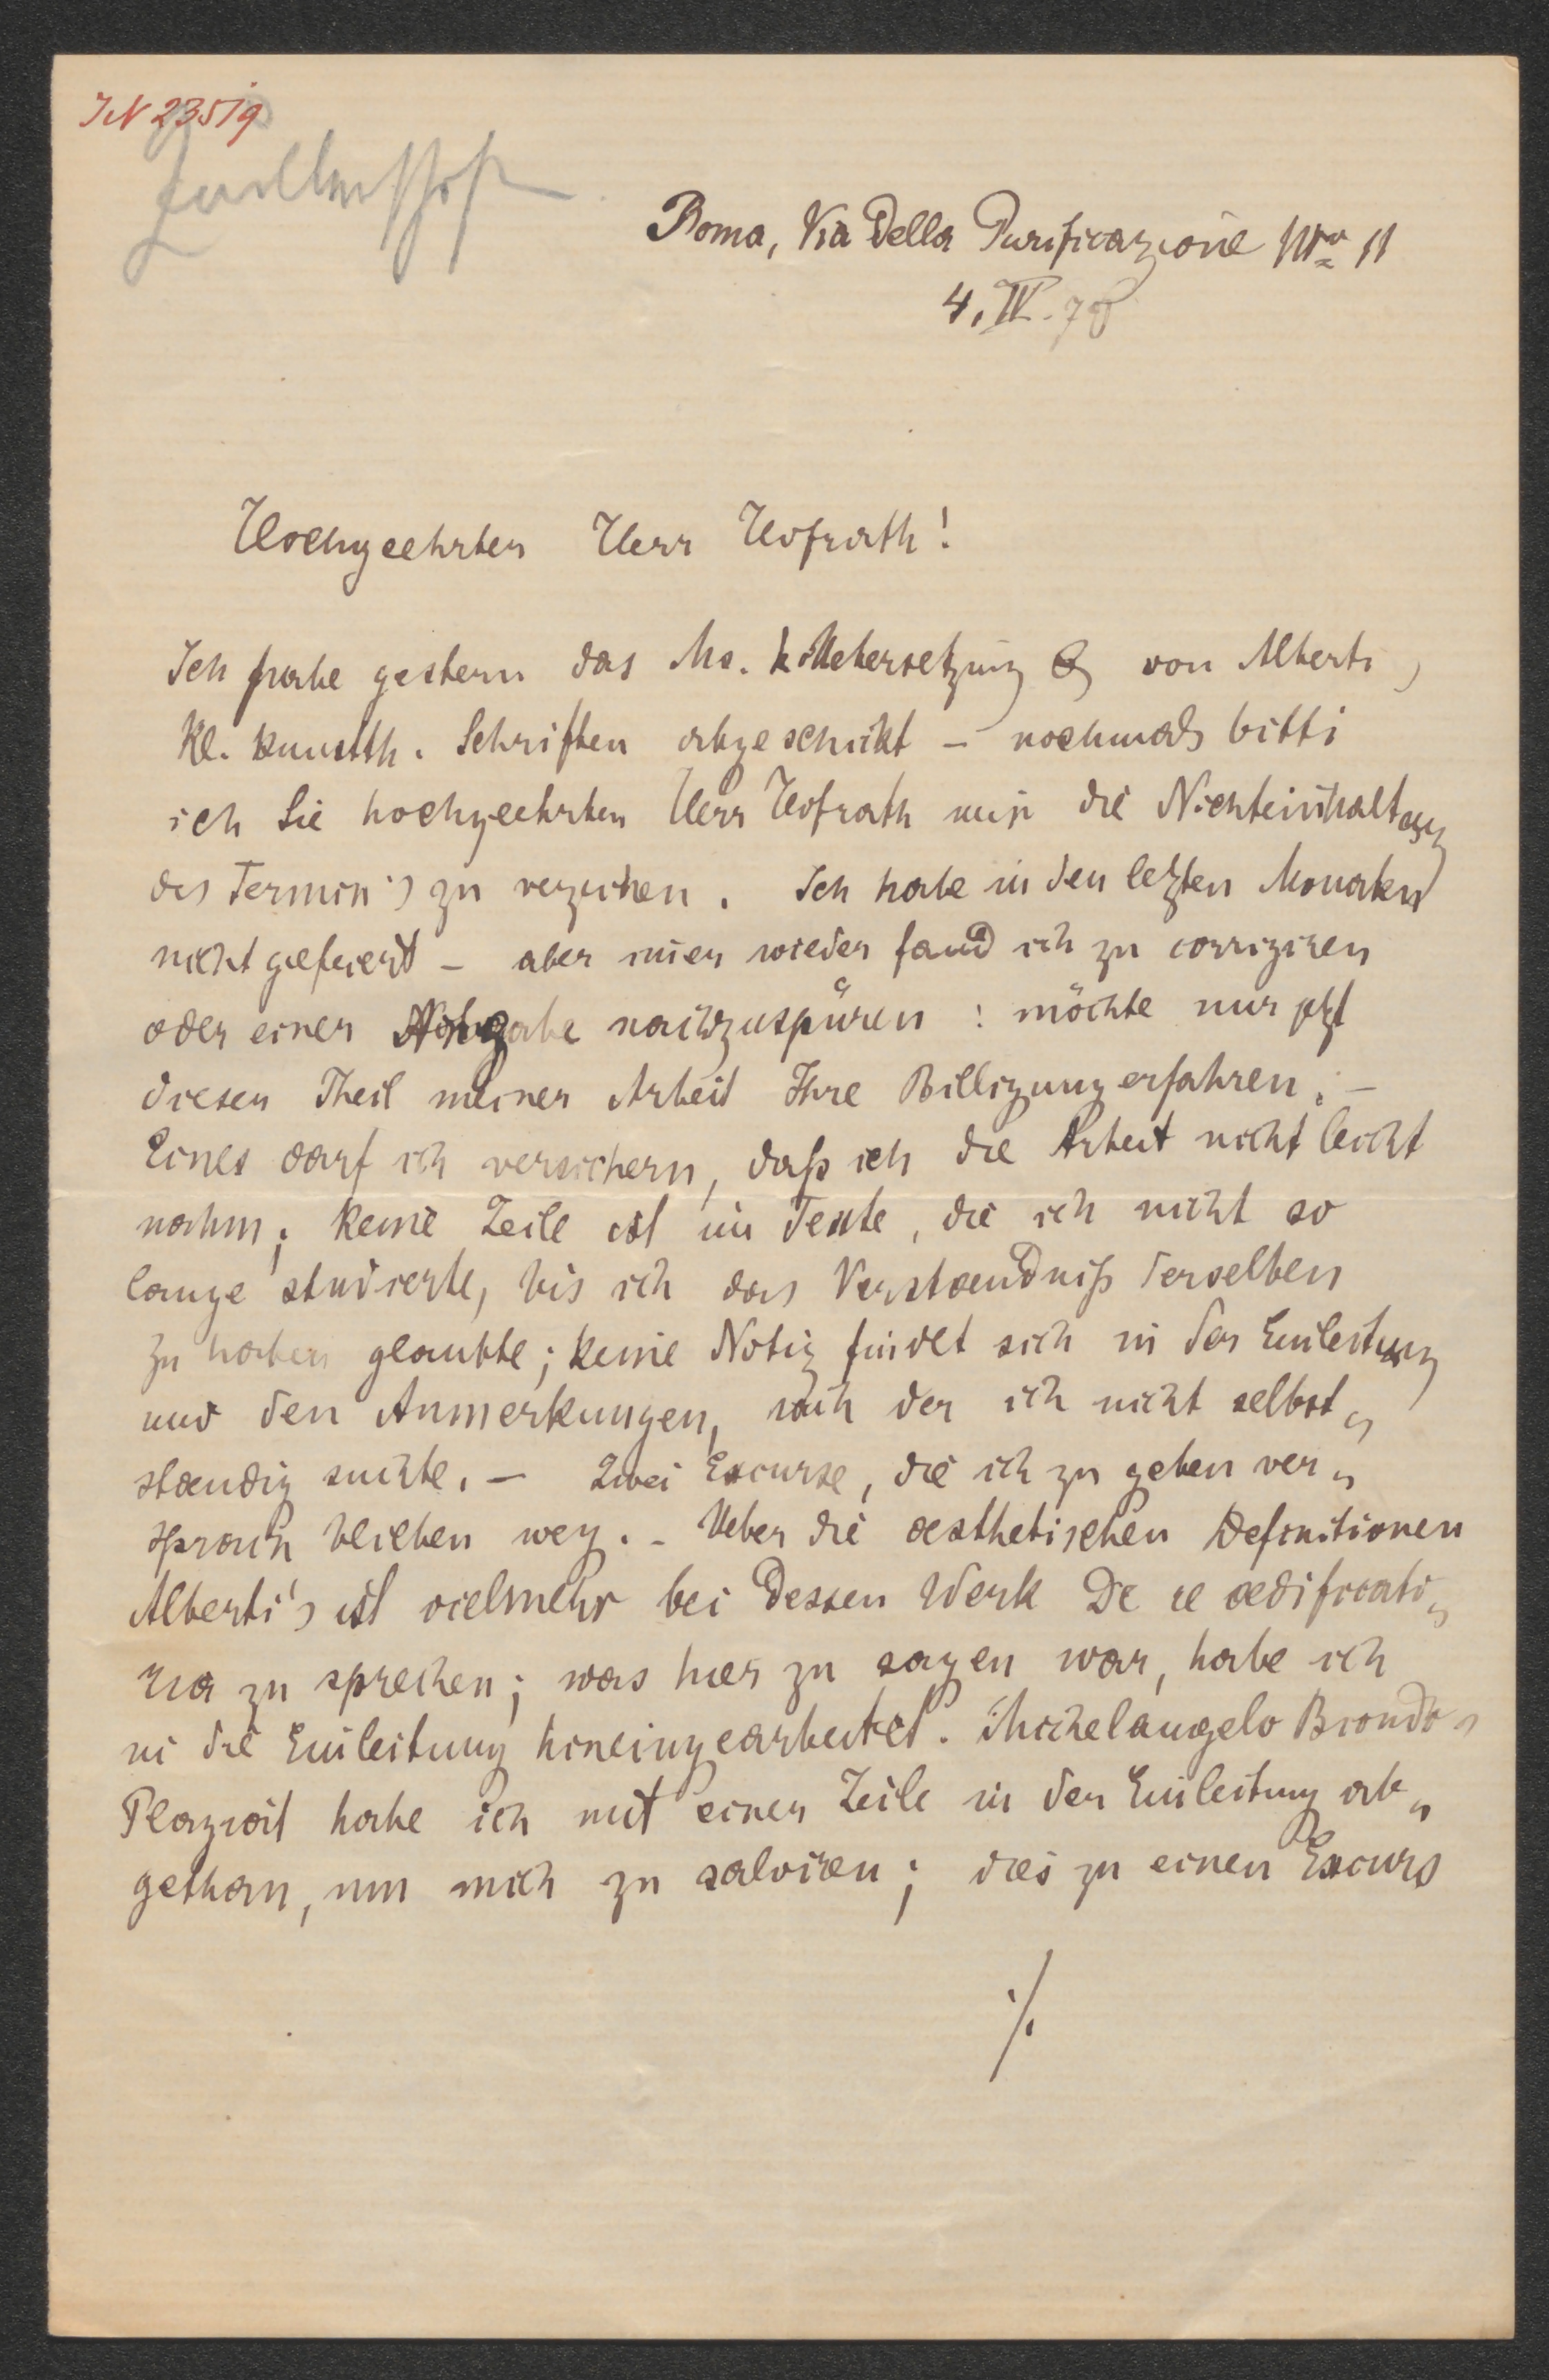 IN 23519
Roma, Via della Purificazione Nro 11
4. IV. 78
Hochgeehrter Herr Hofrath!
Ich habe gestern das Ms. d. Uebersetzung von Alberti's
kl. kunstth. Schriften abgeschickt – nochmals bitte
ich Sie hochgeehrter Herr Hofrath mir die Nichteinhaltung
des Termin's zu verzeihen. Ich habe in den letzten Monaten
nicht gefeiert – aber imer wieder fand ich zu corrigiren
oder einer Angabe nachzuspüren: möchte nur jetzt
dieser Theil meiner Arbeit Ihre Billigung erfahren. –
Eines darf ich versichern, daß ich die Arbeit nicht leicht
nahm; keine Zeile ist im Texte, die ich nicht so
lange studierte, bis ich das Verstaendniß derselben
zu haben glaubte; keine Notiz findet sich in der Einleitung
und den Anmerkungen, nach der ich nicht selbst„
staendig suchte. – Zwei Excurse, die ich zu geben ver„
sprach blieben weg. – Ueber die aesthetischen Definitionen
Alberti's ist vielmehr bei dessen Werk De re aedificato„
ria zu sprechen; was hier zu sagen war, habe ich
in die Einleitung hineingearbeitet. Michelangelo Biondo's
Plagiat habe ich mit einer Zeile in der Einleitung ab„
gethan, um mich zu salviren; dies zu einen Excurs
./.